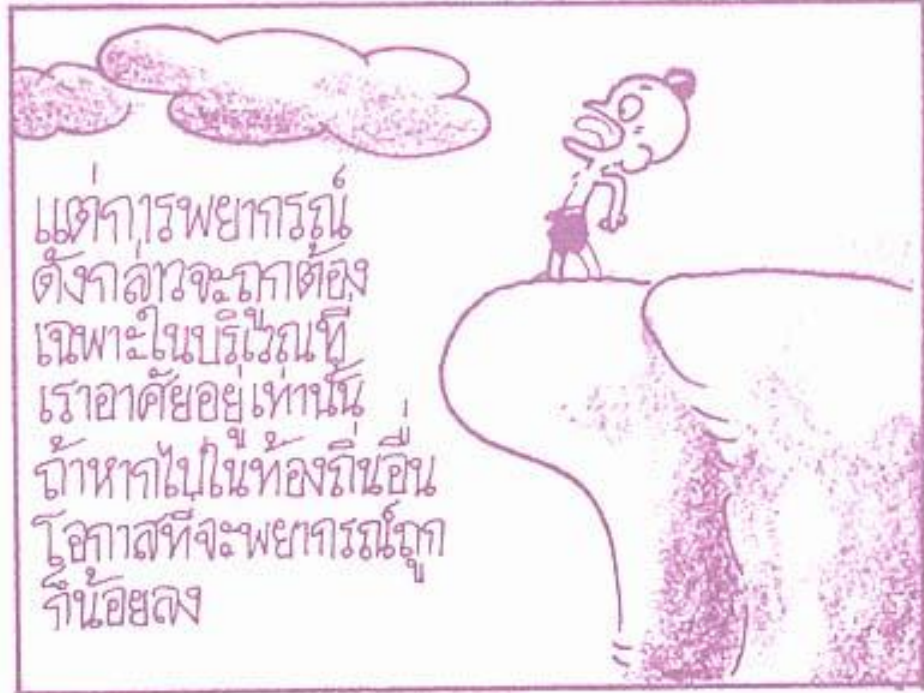 แต่การพยากรณ์
ดังกล่าวจะถูกต้อง
เฉพาะในบริเวณที่
เราอาศัยอยู่เท่านั้น
ถ้าหากไปในท้องถิ่นอื่น
โอกาสที่จะพยากรณ์ถูก
ก็น้อยลง